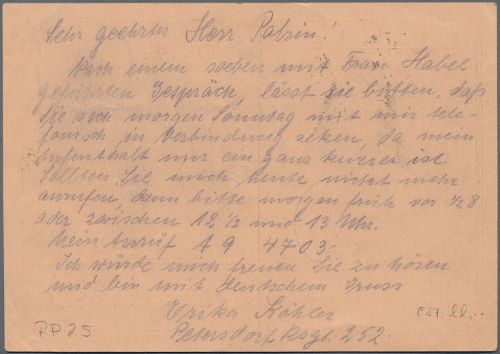 Sehr geehrter Herr Patzin!
Nach einem soeben mit Frau Habel
geführten Gespräch, lässt sie bitten, daß
Sie sich morgen Sonntag mit mir tele-
fonisch in Verbindung setzen, da mein
Aufenthalt nur ein ganz kurzer ist.
Sollten Sie mich heute nicht mehr
anrufen, dann bitte morgen früh vor ½ 8
oder zwischen 12 ½ und 13 Uhr.
Mein Anruf A 9 4703.
Ich würde mich freuen Sie zu hören
und bin mit Deutschem Gruss
Erika Köhler
Petersdorf Rsgb. 252.
PP 25